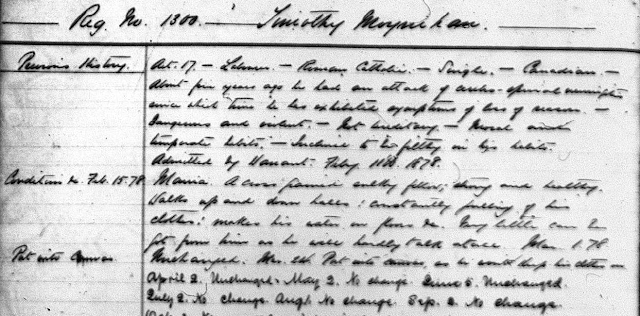 Reg. No. 1300. Timothy Moynihan.
Previous History. Aet. 17. — Labourer — Roman Catholic. — Single. — Canadian. —
About five years ago he had an attack of cerebro-spinal meningitis
since which time he has exhibited symptoms of loss of reason. —
Dangerous and violent. — Not hereditary — Moral and
temperate habits. — Inclined to be filthy in his habits.
Admitted by Warrant. Feby 11th 1878.
Condition &c Feb. 15. 78. Mania. A cross grained sulky fellow, strong and healthy.
Walks up and down halls: constantly pulling off his
clothes: makes his water on floors &c. Very little can be
got from him as he will hardly talk at all. Mar. 1. 78
Put into Canvas Unchanged. Put into canvas, as he would strip his clothes —
April 2. Unchanged. May 2. No change. June 5. Unchanged.
July 2. No change. Augt. No change. Sep. 2. No change.